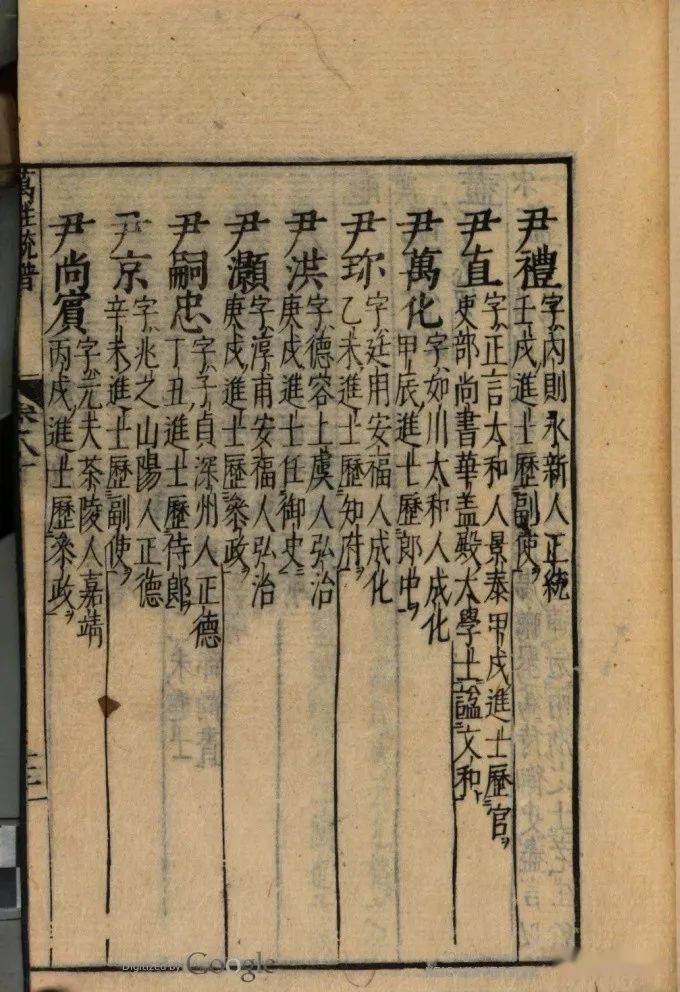 尹禮
字內則永新人正統
壬戌進士歷副使
尹直
字正言太和人景泰甲戌進士歷官
吏部尚書華盖殿大學士謚文和
尹萬化
字如川太和人成化
甲辰進士歷郎中
尹珎
字廷用安福人成化
乙未進士歷知府
尹洪
字德容上虞人弘治
庚戌進士任御史
尹灝
字淳甫安福人弘治
庚戌進士歷叅政
尹嗣忠
字子貞深州人正德
丁丑進士歷侍郎
尹京
字兆之山陽人正德
辛未進士歷副使
尹尚賓
字元夫茶陵人嘉靖
丙戌進士歷叅政
萬姓統譜
Digitized by Google